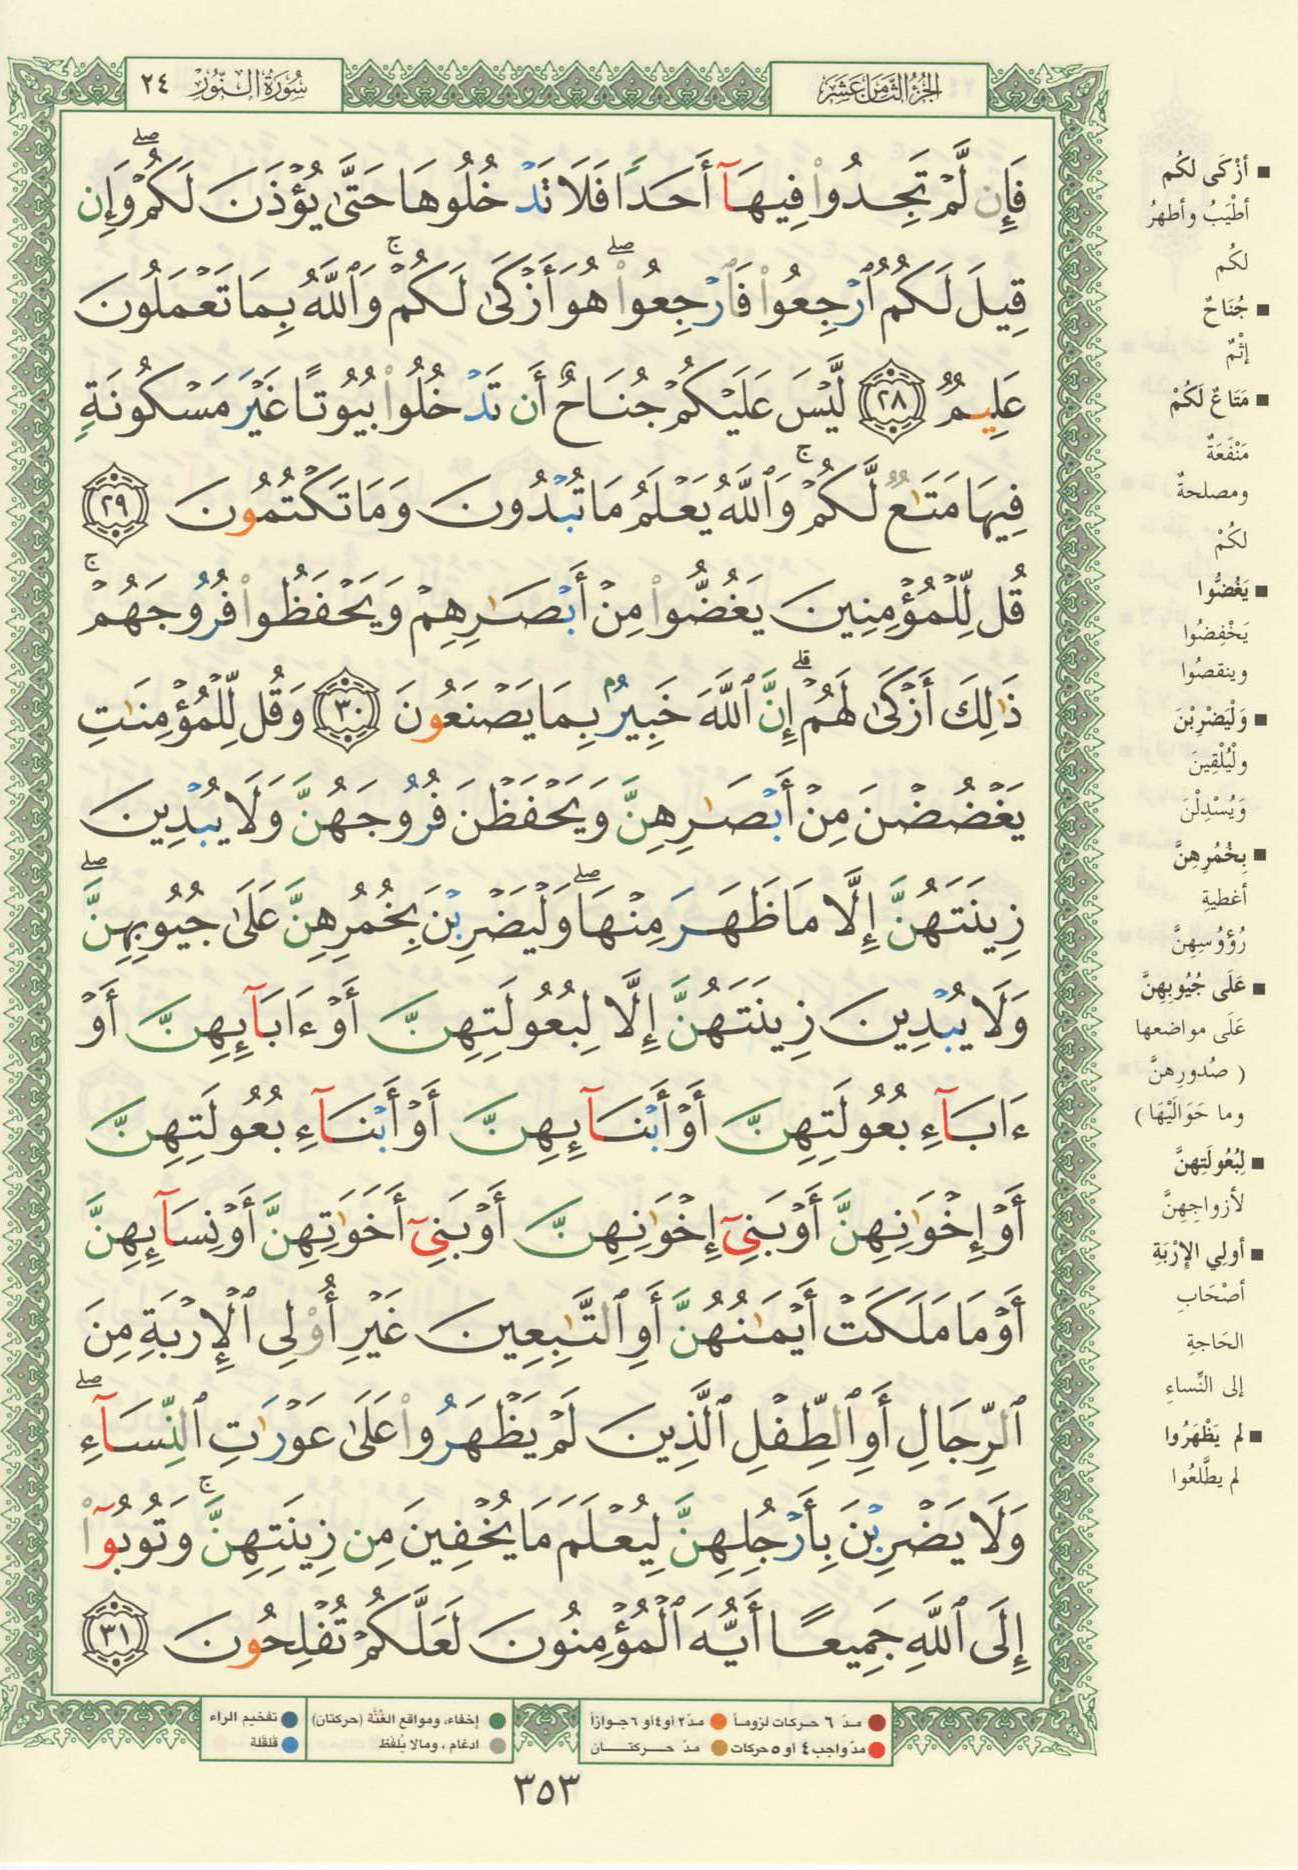 الجزء الثامن عشر
سورة النور ٢٤
فَإِن لَّمْ تَجِدُوا۟ فِيهَآ أَحَدًا فَلَا تَدْخُلُوهَا حَتَّىٰ يُؤْذَنَ لَكُمْ ۖ وَإِن
قِيلَ لَكُمُ ٱرْجِعُوا۟ فَٱرْجِعُوا۟ ۖ هُوَ أَزْكَىٰ لَكُمْ ۚ وَٱللَّهُ بِمَا تَعْمَلُونَ
عَلِيمٌ ﴿٢٨﴾ لَّيْسَ عَلَيْكُمْ جُنَاحٌ أَن تَدْخُلُوا۟ بُيُوتًا غَيْرَ مَسْكُونَةٍ
فِيهَا مَتَـٰعٌ لَّكُمْ ۚ وَٱللَّهُ يَعْلَمُ مَا تُبْدُونَ وَمَا تَكْتُمُونَ ﴿٢٩﴾
قُل لِّلْمُؤْمِنِينَ يَغُضُّوا۟ مِنْ أَبْصَـٰرِهِمْ وَيَحْفَظُوا۟ فُرُوجَهُمْ ۚ
ذَٰلِكَ أَزْكَىٰ لَهُمْ ۗ إِنَّ ٱللَّهَ خَبِيرٌۢ بِمَا يَصْنَعُونَ ﴿٣٠﴾ وَقُل لِّلْمُؤْمِنَـٰتِ
يَغْضُضْنَ مِنْ أَبْصَـٰرِهِنَّ وَيَحْفَظْنَ فُرُوجَهُنَّ وَلَا يُبْدِينَ
زِينَتَهُنَّ إِلَّا مَا ظَهَرَ مِنْهَا ۖ وَلْيَضْرِبْنَ بِخُمُرِهِنَّ عَلَىٰ جُيُوبِهِنَّ ۖ
وَلَا يُبْدِينَ زِينَتَهُنَّ إِلَّا لِبُعُولَتِهِنَّ أَوْ ءَابَآئِهِنَّ أَوْ
ءَابَآءِ بُعُولَتِهِنَّ أَوْ أَبْنَآئِهِنَّ أَوْ أَبْنَآءِ بُعُولَتِهِنَّ
أَوْ إِخْوَٰنِهِنَّ أَوْ بَنِىٓ إِخْوَٰنِهِنَّ أَوْ بَنِىٓ أَخَوَٰتِهِنَّ أَوْ نِسَآئِهِنَّ
أَوْ مَا مَلَكَتْ أَيْمَـٰنُهُنَّ أَوِ ٱلتَّـٰبِعِينَ غَيْرِ أُو۟لِى ٱلْإِرْبَةِ مِنَ
ٱلرِّجَالِ أَوِ ٱلطِّفْلِ ٱلَّذِينَ لَمْ يَظْهَرُوا۟ عَلَىٰ عَوْرَٰتِ ٱلنِّسَآءِ ۖ
وَلَا يَضْرِبْنَ بِأَرْجُلِهِنَّ لِيُعْلَمَ مَا يُخْفِينَ مِن زِينَتِهِنَّ ۚ وَتُوبُوٓا۟
إِلَى ٱللَّهِ جَمِيعًا أَيُّهَ ٱلْمُؤْمِنُونَ لَعَلَّكُمْ تُفْلِحُونَ ﴿٣١﴾
■ أزْكَى لكُم
أطْيَبُ وأطهرُ
لكُم
■ جُنَاحٌ
إثْمٌ
■ مَتَاعٌ لَكُمْ
مَنْفَعَةٌ
ومصلحةٌ
لكُمْ
■ يَغُضُّوا
يَخْفِضُوا
وينقصُوا
■ وَلْيَضْرِبْنَ
ولْيُلْقِينَ
وَيُسْدِلْنَ
■ بِخُمُرِهِنَّ
أغطيةِ
رُؤوُسِهِنَّ
■ عَلَى جُيُوبِهِنَّ
عَلَى مواضعها
( صُدورِهنَّ
وما حَوَالَيْهَا )
■ لِبُعُولَتِهنَّ
لأزواجِهِنَّ
■ أولِي الإرْبَةِ
أصْحَابِ
الحَاجةِ
إلى النِّساءِ
■ لم يَظْهَرُوا
لم يطَّلعُوا
مدّ ٦ حركات لزوماً
مدّ ٢ أو ٤ أو ٦ جوازاً
مدّ واجب ٤ أو ٥ حركات
مدّ حركتان
إخفاء، ومواقع الغُنَّة (حركتان)
تفخيم الراء
ادغام ، ومالا يُلفَظ
قلقلة
٣٥٣